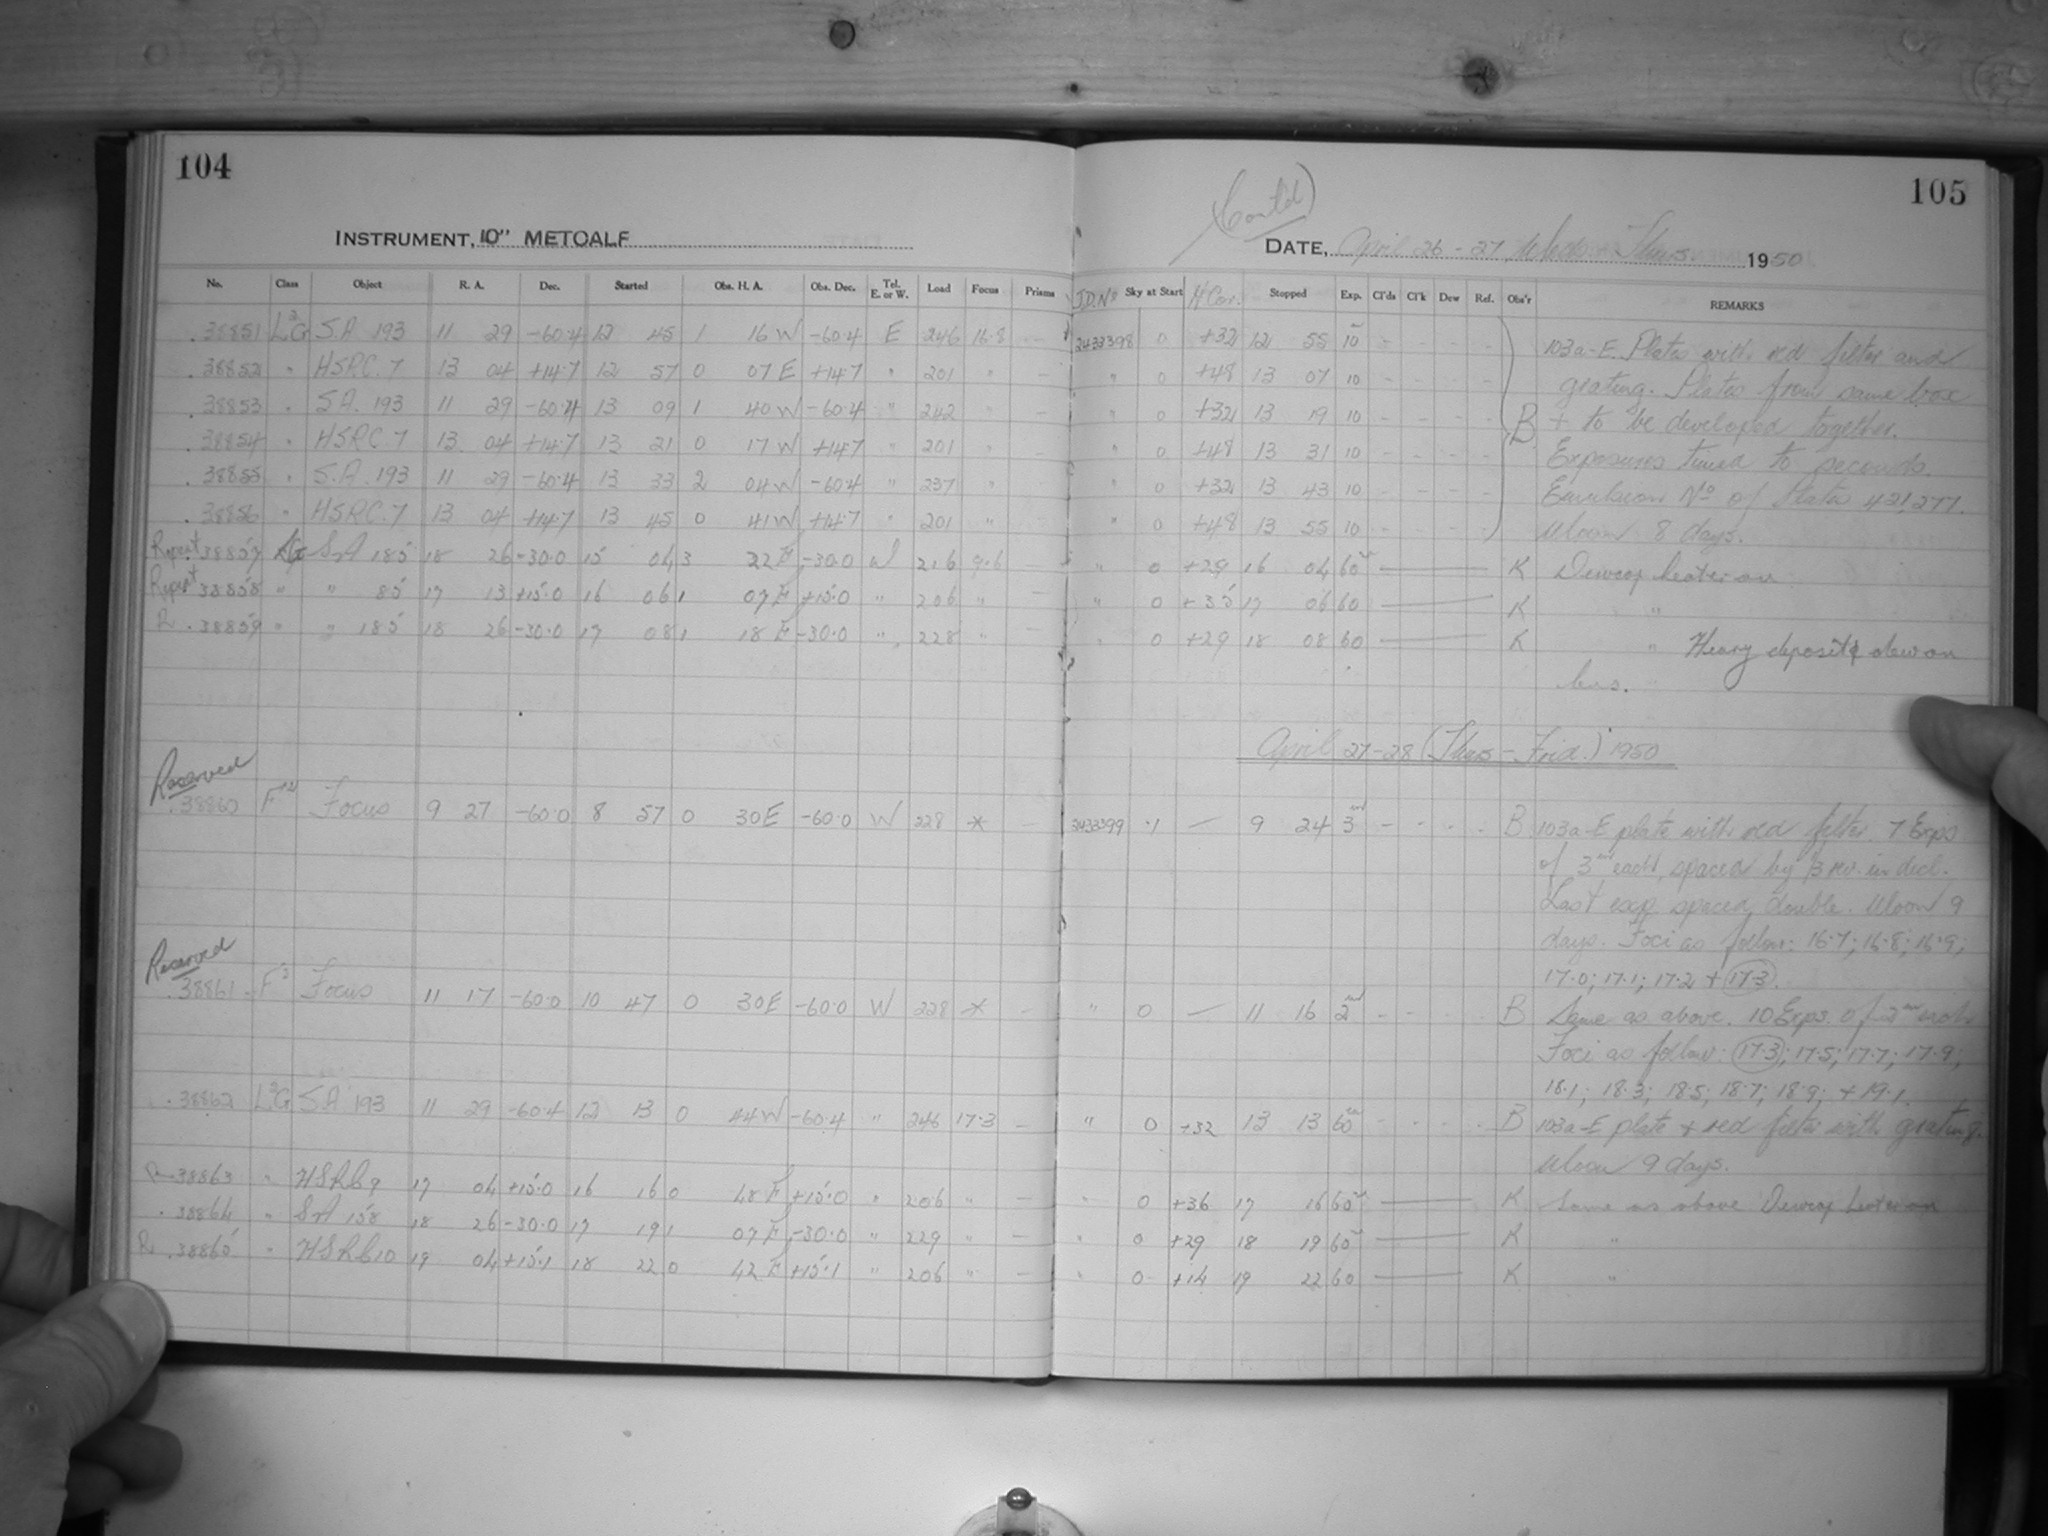 104
105
(Cont'd)
INSTRUMENT, 10" METCALF
DATE, April 26 - 27 Weds - Thurs 1950
No. Class Object R. A. Dec. Started Obs. H. A. Obs. Dec. Tel. E. or W. Load Focus Prisms J.D. No Sky at Start H Cor. Stopped Exp. Cl'ds Cl'k Dew Ref. Obs'r REMARKS
38851 L2G S.A. 193 11 29 -60.4 12 45 1 16 W -60.4 E 246 16.8 - 2433398 0 +32 12 55 10 - - - - 103a-E Plates with red filter and
38852 " HSRC. 7 13 04 +14.7 12 57 0 07 E +14.7 " 201 " - " 0 +48 13 07 10 - - - - grating. Plates from same box
38853 " S.A. 193 11 29 -60.4 13 09 1 40 W -60.4 " 242 " - " 0 +32 13 19 10 - - - - B + to be developed together.
38854 " HSRC. 7 13 04 +14.7 13 21 0 17 W +14.7 " 201 " - " 0 +48 13 31 10 - - - - Exposures timed to seconds.
38855 " S.A. 193 11 29 -60.4 13 33 2 04 W -60.4 " 237 " - " 0 +32 13 43 10 - - - - Emulsion No of Plates 421,277.
38856 " HSRC. 7 13 04 +14.7 13 45 0 41 W +14.7 " 201 " - " 0 +48 13 55 10 - - - - Moon 8 days.
Repeat 38857 SA 185 18 26 -30.0 15 04 3 22 E -30.0 W 216 9.6 - " 0 +29 16 04 60 K Dewcap heater on
Repeat 38858 " " 85 17 13 +15.0 16 06 1 07 E +15.0 " 206 " - " 0 +35 17 06 60 K "
R 38859 " " 185 18 26 -30.0 17 08 1 18 E -30.0 " 228 " - " 0 +29 18 08 60 K " Heavy deposit of dew on
lens.
April 27-28 (Thurs - Frid.) 1950
Reserved
38860 F12 Focus 9 27 -60.0 8 57 0 30 E -60.0 W 228 * - 2433399 .1 - 9 24 3 - - - - B 103a-E plate with red filter. 7 Exps
of 3 each, spaced by 1/3 rev. in decl.
Last exp. spaced double. Moon 9
days. Foci as follow: 16.7; 16.8; 16.9;
17.0; 17.1; 17.2 + 17.3.
Reserved
38861 Focus 11 17 -60.0 10 47 0 30 E -60.0 W 228 * - " 0 - 11 16 2 - - - - B Same as above. 10 Exps. of 2 each
Foci as follow: 17.3; 17.5; 17.7; 17.9;
18.1; 18.3; 18.5; 18.7; 18.9; + 19.1.
38862 L2G SA 193 11 29 -60.4 12 13 0 44 W -60.4 " 246 17.3 - " 0 +32 13 13 60 - - - - B 103a-E plate + red filter with grating.
Moon 9 days.
R 38863 " HSRC 9 17 04 +15.0 16 16 0 48 E +15.0 " 206 " - " 0 +36 17 16 60 K Same as above Dewcap heater on
38864 " SA 158 18 26 -30.0 17 19 1 07 E -30.0 " 229 " - " 0 +29 18 19 60 K "
R 38865 " HSRC 10 19 04 +15.1 18 22 0 42 E +15.1 " 206 " - " 0 +14 19 22 60 K "